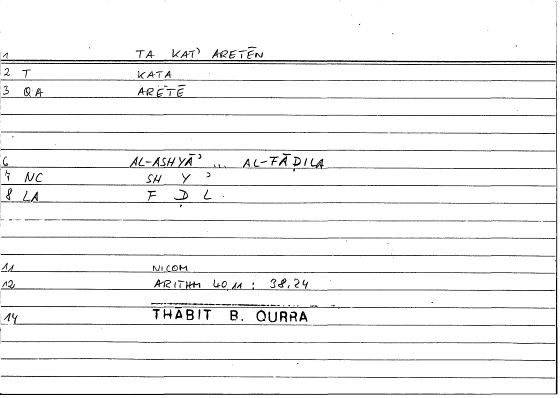 1 TA KAT' ARETĒN
2 T KATA
3 QA ARETĒ
6 AL-ASHYĀʾ ... AL-FĀḌILA
7 NC SH Y ʾ
8 LA F Ḍ L
11 NICOM
12 ARITHM 40,11 : 38.24
14 THĀBIT B. QURRA